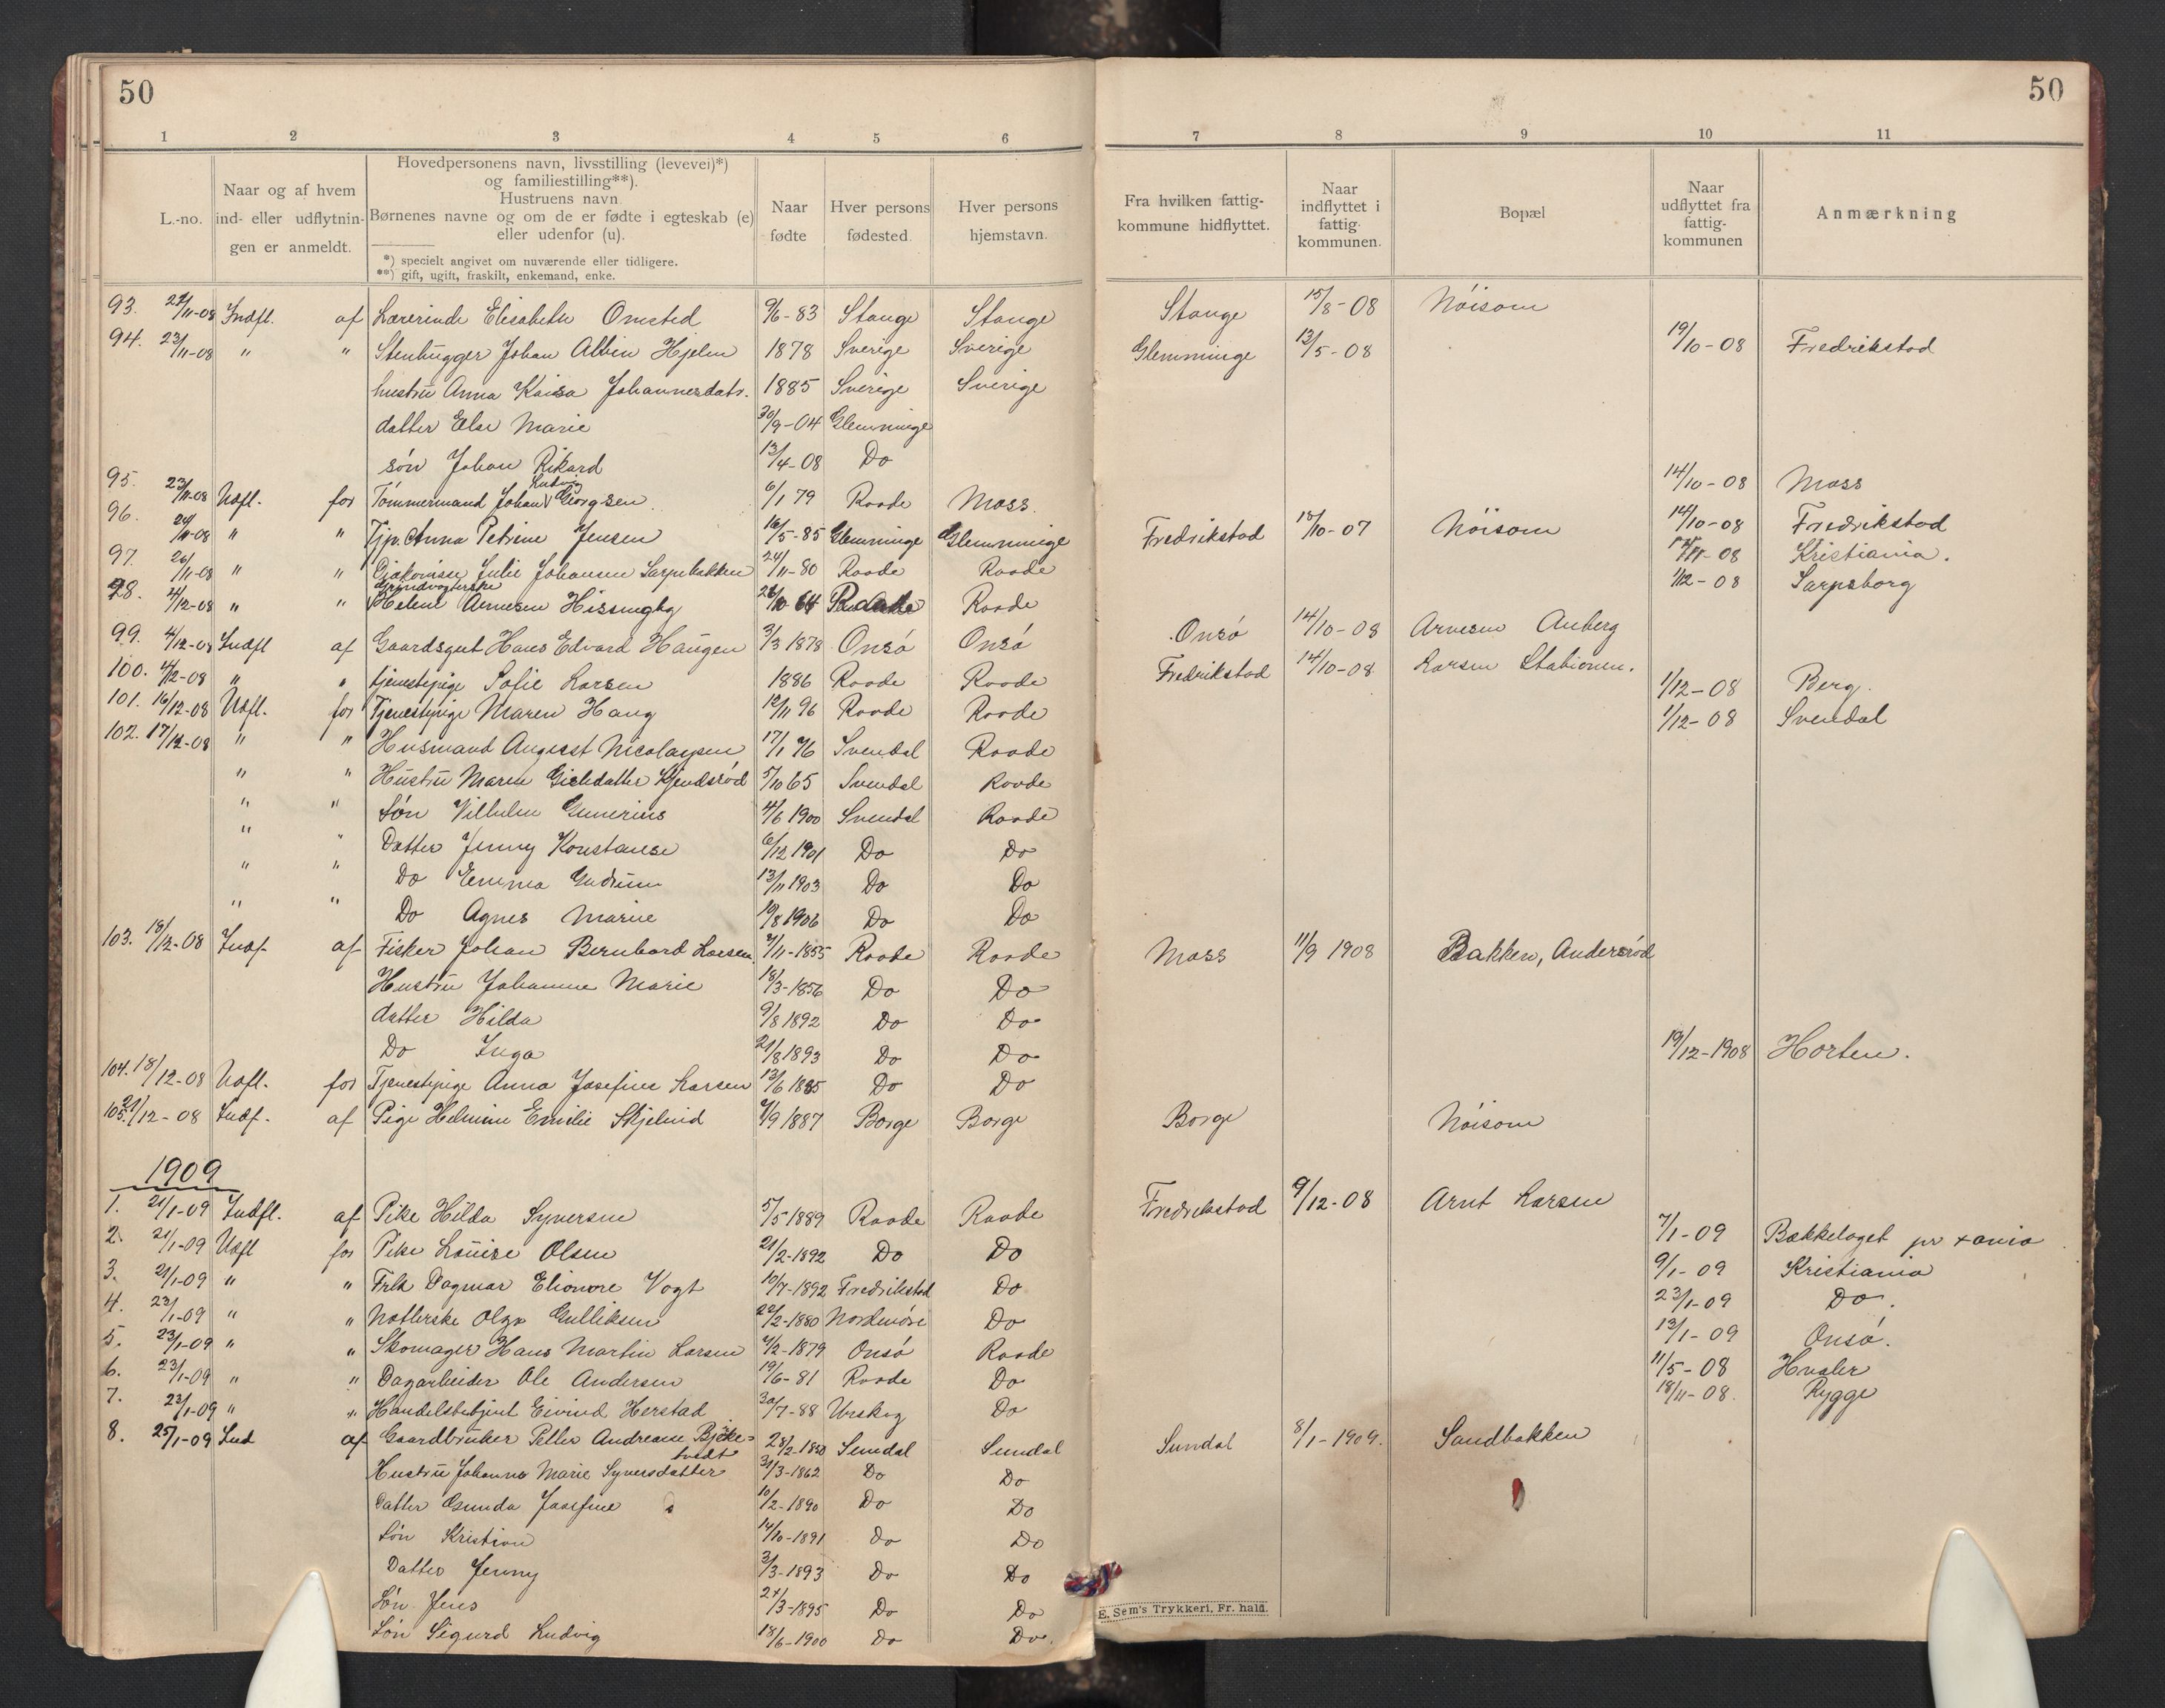 50 50
1 2 3 4 5 6 7 8 9 10 11
L.-no.
Naar og af hvem
ind- eller udflytnin-
gen er anmeldt.
Hovedpersonens navn, livsstilling (levevei)*)
og familiestilling**).
Hustruens navn
Børnenes navne og om de er fødte i egteskab (e)
eller udenfor (u).
*) specielt angivet om nuværende eller tidligere.
**) gift, ugift, fraskilt, enkemand, enke.
Naar
fødte
Hver persons
fødested.
Hver persons
hjemstavn.
Fra hvilken fattig-
kommune hidflyttet.
Naar
indflyttet i
fattig-
kommunen.
Bopæl
Naar
udflyttet fra
fattig-
kommunen
Anmærkning
93. 21/11-08 Indfl. af Lærerinde Elisabeth Omsted 9/6-83 Stange Stange Stange 15/8-08 Nöisom
94. 23/11-08 " " Stenhugger Johan Albin Hjelm 1878 Sverige Sverige Glemminge 13/5-08 19/10-08 Fredrikstad
hustru Anna Kaisa Johannesdatr. 1885 Sverige Sverige
datter Else Marie 30/9-04 Glemminge
sön Johan Rikard 13/4-08 Do
95. 23/11-08 Udfl. for Tömmermand Johan Ludvig Georgsen 6/1 79 Raade Moss. 14/10-08 Moss
96. 24/11-08 " " Tjp. Anna Petrine Jensen 16/5-85 Glemminge Glemminge Fredrikstad 15/10-07 Nöisom 14/10-08 Fredrikstad
97. 26/11-08 " " Julie Johansen Sarpebakken 24/11-80 Raade Raade 08 Kristiania.
98. 4/12-08 " " Helene Arnesen 64 Raade 1/12-08 Sarpsborg
99. 4/12-08 Indfl af Gaardsgut Hans Edvard Haugen 3/3 1878 Onsö Onsö Onsö 14/10-08 Arnesen Anberg
100. 4/12-08 " " tjenestepige Sofie Larsen 1886 Raade Raade Fredrikstad 14/10-08 Larsen Stationen.
101. 16/12-08 Udfl. for Tjenestepige Maren Haug 12/11 96 Raade Raade 1/12-08 Berg.
102. 17/12-08 " " Husmand August Nicolaysen 17/1 76 Svendal Raade 1/12-08 Svendal
" " Hustru Maren Gisledatter Kjendsröd 5/10 65 Svendal Raade
" " Sön Vilhelm Gunerius 4/6 1900 Svendal Raade
" " Datter Jenny Konstanse 6/12 1901 Do Do
" " Do Emma Gudrun 13/11 1903 Do Do
" " Do Agnes Marie 19/8 1906 Do Do
103. 18/12-08 Indf. af Fisker Johan Bernhard Larsen 7/11-1855 Raade Raade Moss 11/9 1908 Bakken, Andersröd
Hustru Johanne Marie 18/3-1856 Do Do
datter Hilda 9/8 1892 Do Do
Do Inga 21/8 1893 Do Do
104. 18/12-08 Udfl. for Tjenestepige Anna Josefine Larsen 13/6 1885 Do Do 19/12-1908 Horten.
105. 21/12-08 Indf. af Pige Helmine Emilie Skjelind 7/9 1887 Borge Borge Borge Nöisom
1909
1. 21/1-09 Indfl. af Pike Hilda Syversen 5/5 1889 Raade Raade Fredrikstad 9/12-08 Arnt Larsen
2. 21/1-09 Udfl for Pike Louise Olsen 21/2-1892 Do Do 7/1-09 Bækkelaget pr xania
3. 21/1-09 " " Frk Dagmar Elionore Vogt 10/7-1892 Fredrikstad Do 9/1-09 Kristiania
4. 23/1-09 " " Olga Gulliksen 22/2-1880 Nordmöre Do 23/1-09 Do.
5. 23/1-09 " " Skomager Hans Martin Larsen 7/2-1879 Onsö Raade 13/1-09 Onsö.
6. 23/1-09 " " Dagarbeider Ole Andersen 19/6-81 Raade Do 11/5-08 Hvaler
7. 23/1-09 " " Handelsbetjent Eivind Herstad 30/7-88 Urskog Do 18/11-08. Rygge
8. 25/1-09 Ind af Gaardbruker Petter Andreasen Bjöke-
tvedt 28/2-1850 Sundal Sundal Sundal 8/1-1909. Sandbakken
Hustru Johanne Marie Syversdatter 31/3-1862 Do Do
Datter Gunda Josefine 10/2-1890 Do Do
Sön Kristian 14/10-1891 Do Do
Datter Jenny 3/3-1893 Do Do
Sön Jens 24/3-1895 Do Do
Sön Sigurd Ludvig 18/6-1900 Do Do.
E. Sem's Trykkeri, Fr. hald.